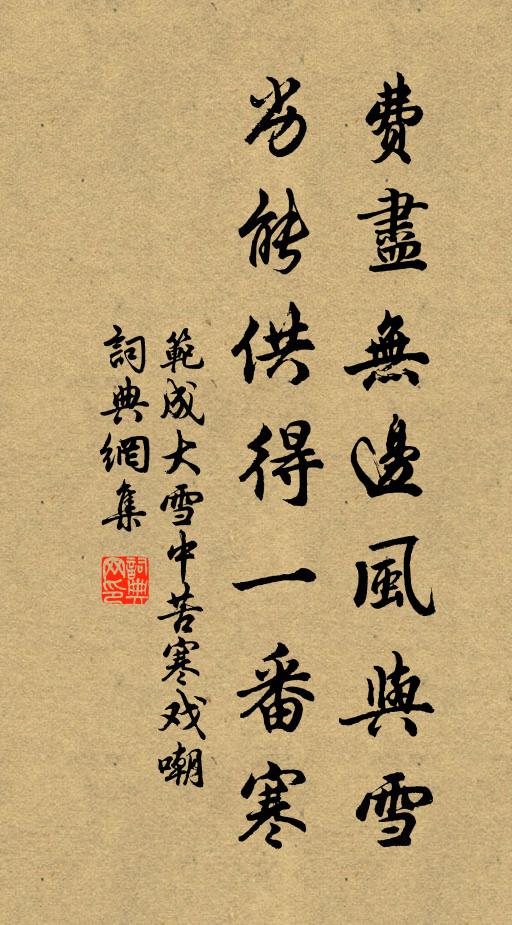 費盡無邊風與雪
劣能供得一番寒
範成大雪中苦寒戏嘲
詞典網集
詞典
网印